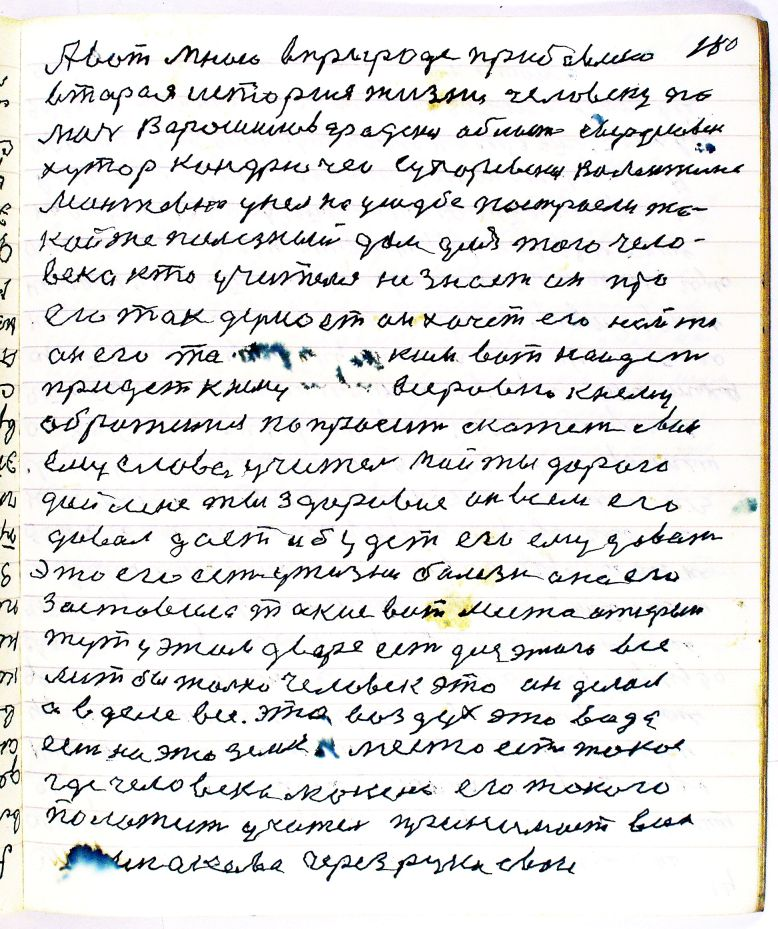 180
А вот много впрыроде прибавлено
вторая история жизни человеку по
мог Варошиловградская область свердловск
хутор кондрючео Сухоревская Валентина
Монтовна у нея на усадбе построели та-
кой же полезный дом для того чело-
века кто учителя не знает он про
его так думоет он хочет его нойти
он его та ким вот ноидет
придет кнему всеровно кнему
обратится попросит скажет свои
ему слова, учител мой ты дорого
дай мене ты здоровие он всем его
довал дает и будет его ему доват
это его ест ужизни болезн она его
Заставила такие вот места открыт
тут у этом дваре ест для этого все
лиш бы толко человек это он делал
а в деле все. Это воздух это вада
ест на это земля место ест токое
где человека можно его токого
положит учител принимоет всех
инакова через руки свои